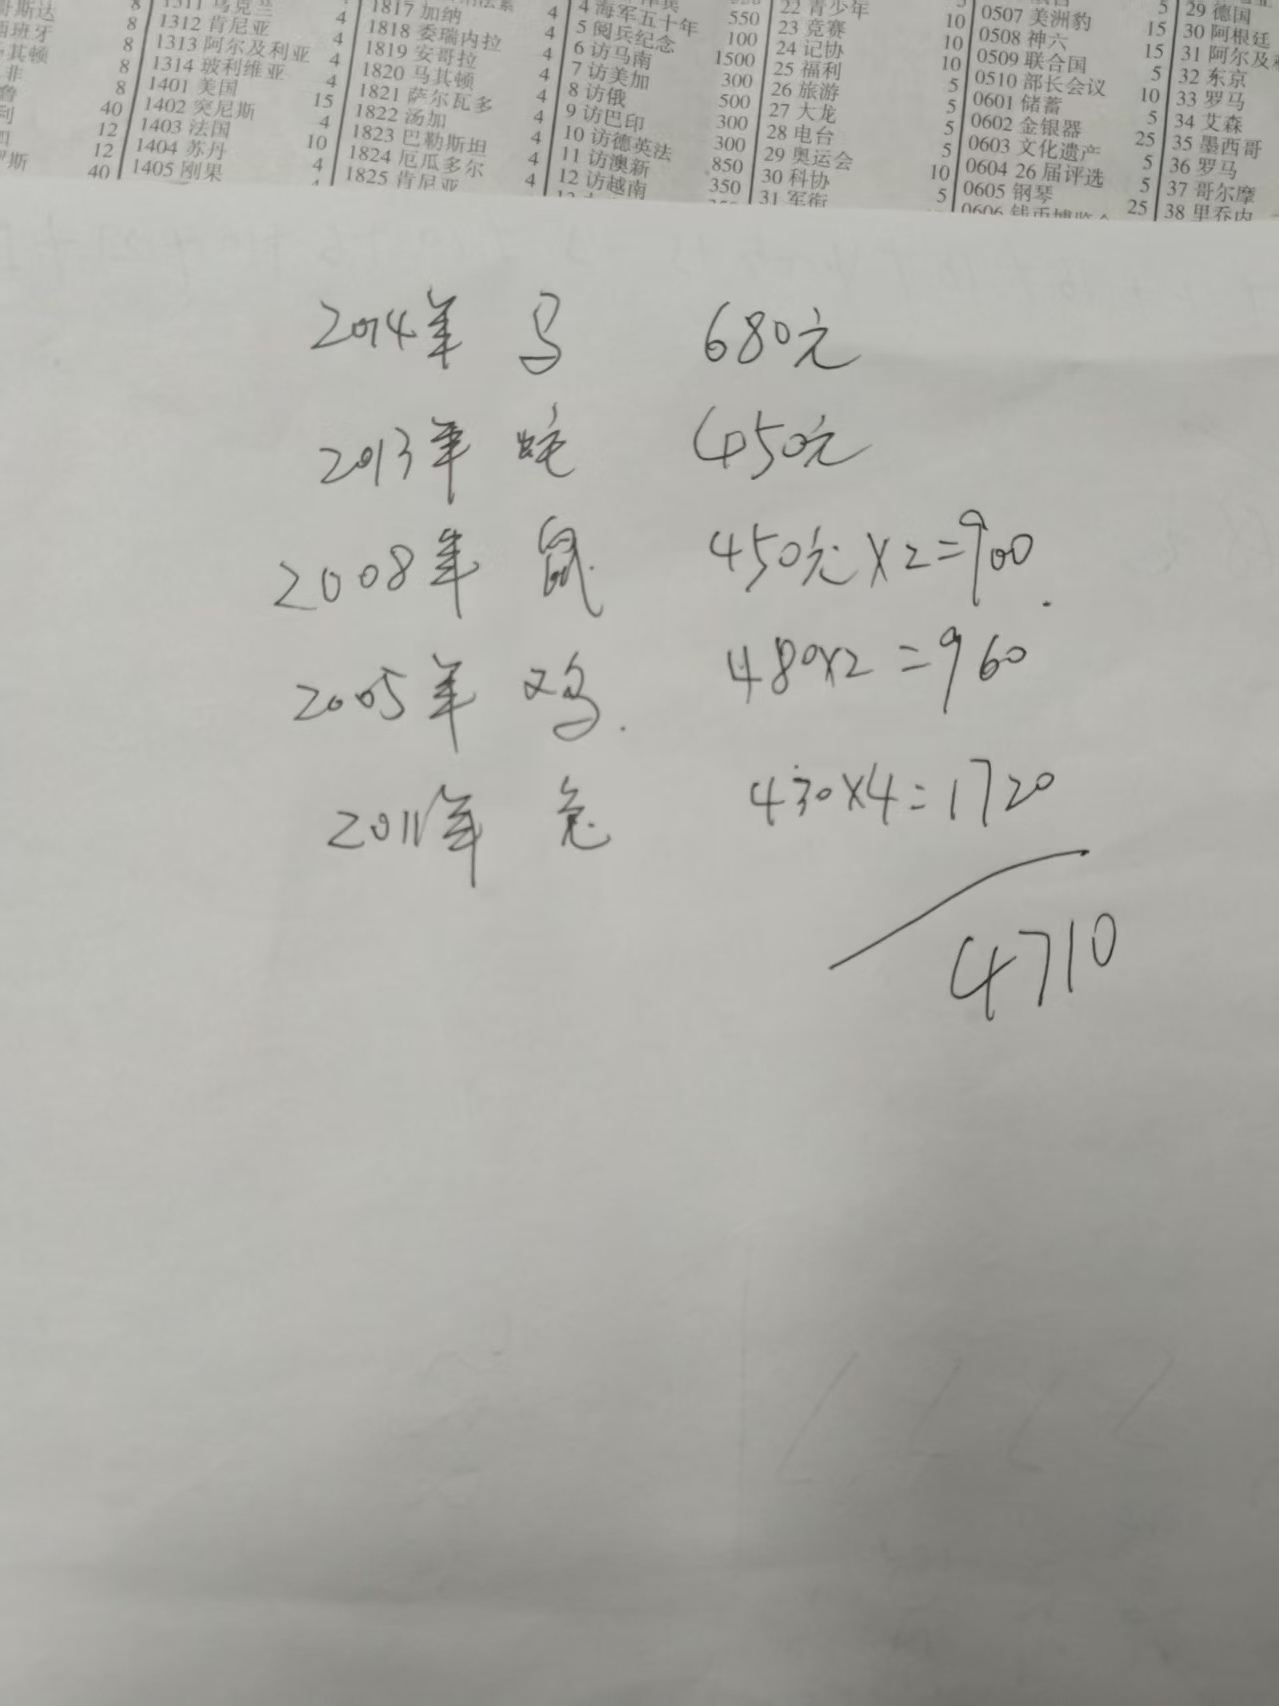 1817 加纳
1312 肯尼亚 4
1818 委瑞内拉 4
1313 阿尔及利亚 4
1819 安哥拉 4
1314 玻利维亚 4
1820 马其顿 4
1401 美国 15
1821 萨尔瓦多 4
1402 突尼斯 4
1822 汤加 4
1403 法国 10
1823 巴勒斯坦 4
1404 苏丹 4
1824 厄瓜多尔 4
1405 刚果
1825 肯尼亚
4 海军五十年 550
5 阅兵纪念 100
6 访马南 1500
7 访美加 300
8 访俄 500
9 访巴印 300
10 访德英法 300
11 访澳新 850
12 访越南 350
22 青少年
23 竞赛 10
24 记协 10
25 福利 10
26 旅游 5
27 大龙 5
28 电台 5
29 奥运会 5
30 科协 10
31 军衔 5
0507 美洲豹 5
0508 神六 15
0509 联合国 15
0510 部长会议 5
0601 储蓄 10
0602 金银器 5
0603 文化遗产 25
0604 26届评选 5
0605 钢琴 5
29 德国
30 阿根廷
31 阿尔及
32 东京
33 罗马
34 艾森
35 墨西哥
36 罗马
37 哥尔摩
38 里乔内
2014年 马 680元
2013年 蛇 450元
2008年 鼠 450元×2=900
2005年 鸡 480×2=960
2011年 兔 430×4=1720
4710